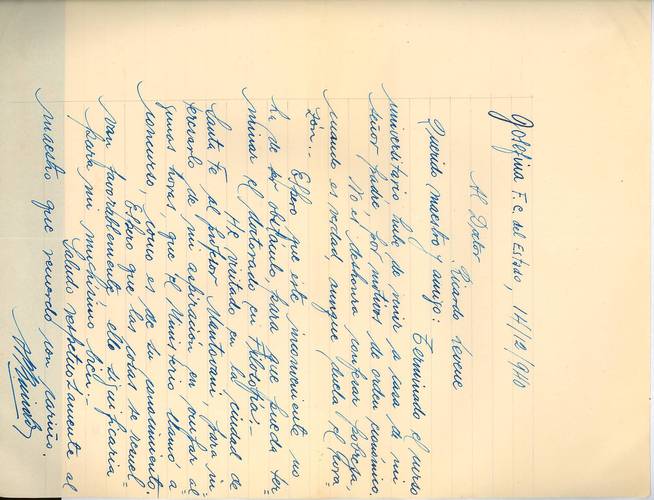 Josefina F.C. del Estado, 14/12/940
Al Doctor
Ricardo Levene
Querido maestro y amigo: Terminado el curso
universitario hube de venir a casa de mi
señor padre, por motivos de orden económico,
No es deshonra confesar pobreza,
cuando es verdad, aunque duela el cora=
zón..
Espero que este inconveniente no
ha de ser obstáculo para que pueda ter=
minar el doctorado en Filosofía.-
He visitado en la ciudad de
Santa Fe al profesor Mantovani, para in=
teresarlo de mi aspiración en ocupar al=
gunas horas, que el Ministerio llamó a
concurso, como es de su conocimiento.
Espero que las cosas se resuel=
van favorablemente, ello significaría
para mi muchísimo bien.-
Saludo respetuosamente al
maestro que recuerdo con cariño.